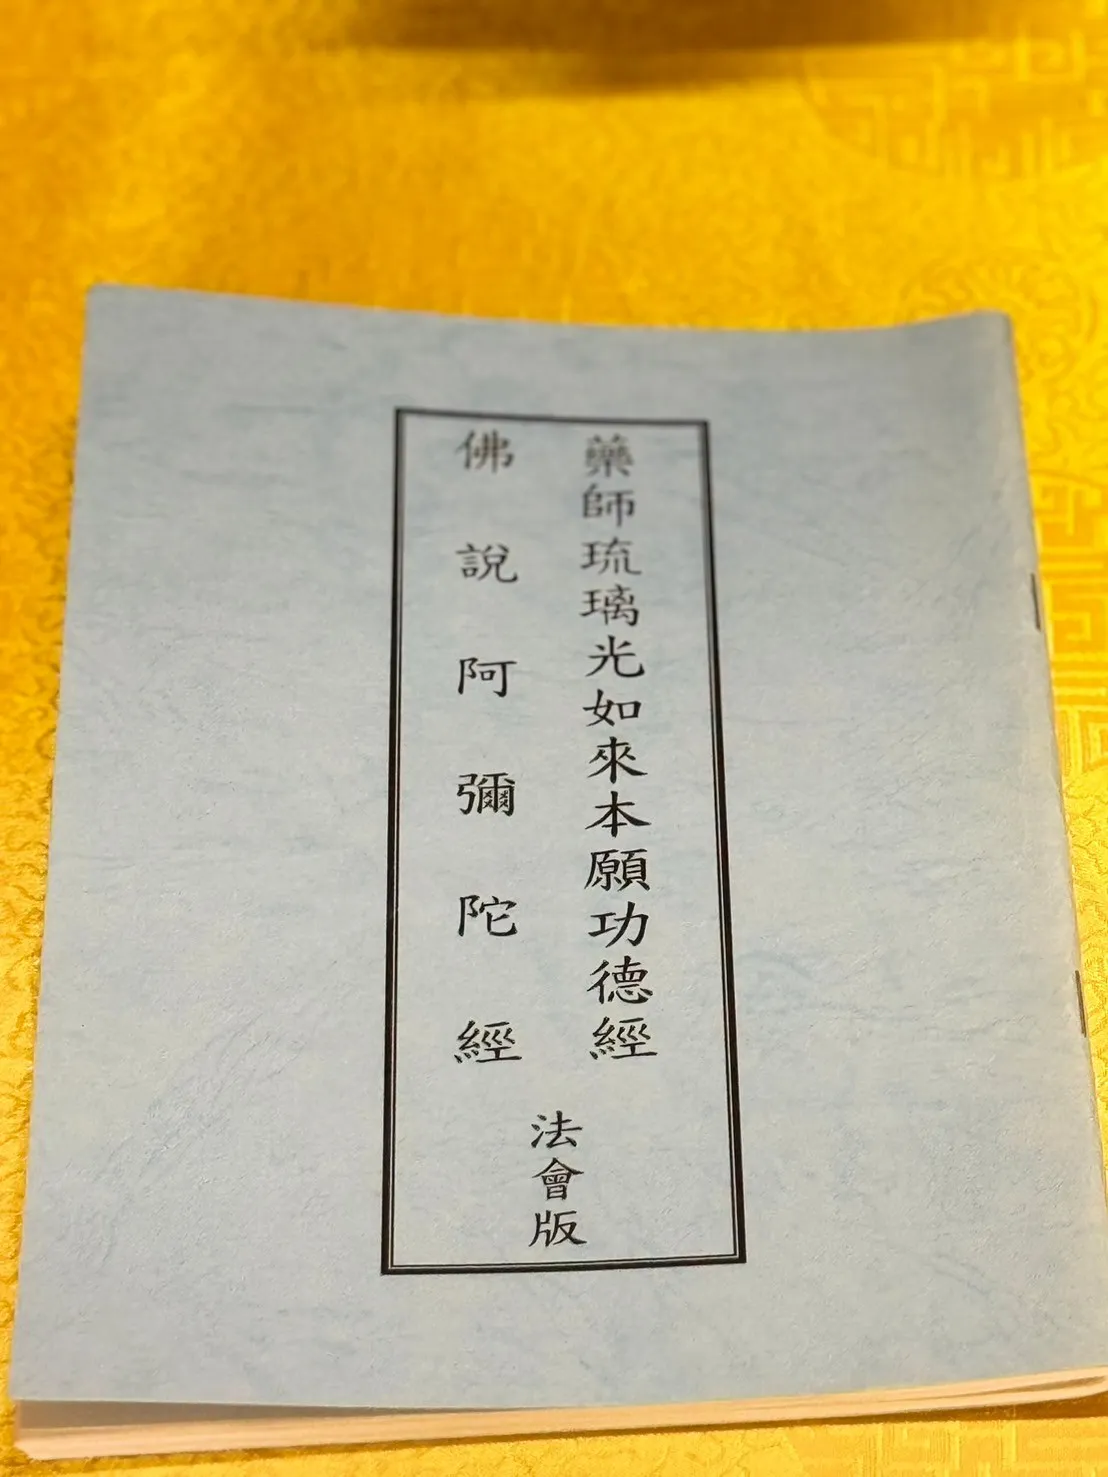 藥師琉璃光如來本願功德經
佛說阿彌陀經
法會版